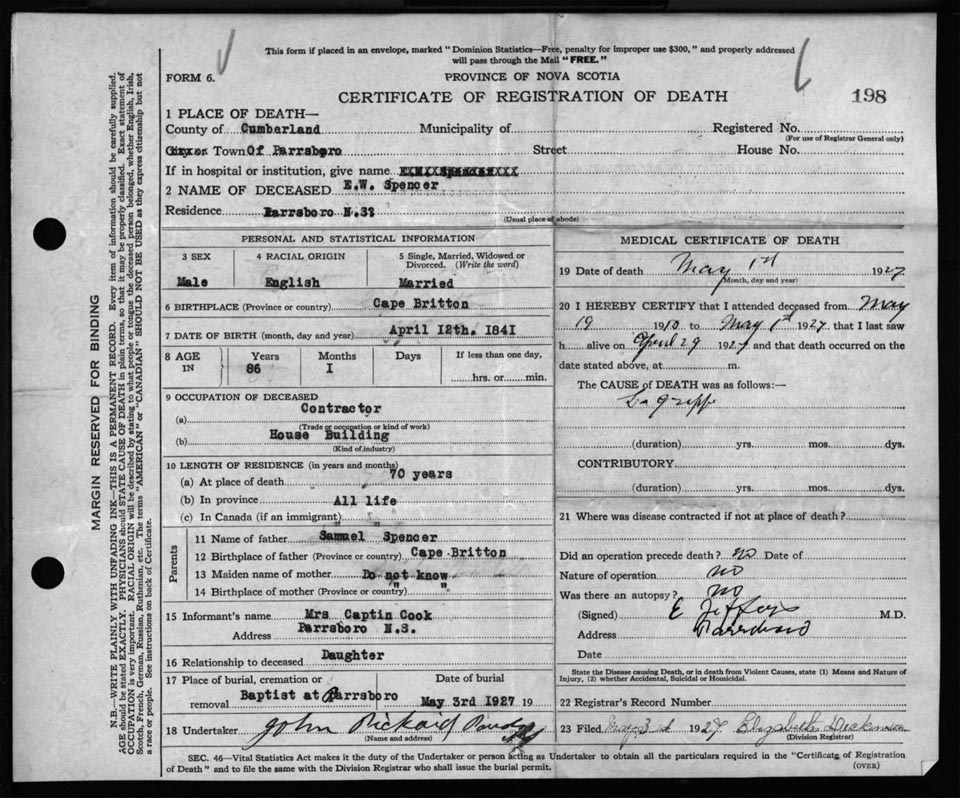 This form if placed in an envelope, marked "Dominion Statistics—Free, penalty for improper use $300," and properly addressed
will pass through the Mail "FREE."
FORM 6.
PROVINCE OF NOVA SCOTIA
CERTIFICATE OF REGISTRATION OF DEATH
198
1 PLACE OF DEATH—
County of Cumberland Municipality of Registered No.
(For use of Registrar General only)
Town Of Parrsboro Street House No.
If in hospital or institution, give name
2 NAME OF DECEASED E.W. Spencer
Residence Parrsboro N.S
(Usual place of abode)
PERSONAL AND STATISTICAL INFORMATION
3 SEX 4 RACIAL ORIGIN 5 Single, Married, Widowed or
Divorced. (Write the word)
Male English Married
6 BIRTHPLACE (Province or country) Cape Britton
7 DATE OF BIRTH (month, day and year) April 12th. 1841
8 AGE IN Years Months Days If less than one day,
86 I hrs. or min.
9 OCCUPATION OF DECEASED
(a) Contractor
(Trade or occupation or kind of work)
(b) House Building
(Kind of industry)
10 LENGTH OF RESIDENCE (in years and months)
(a) At place of death 70 years
(b) In province All life
(c) In Canada (if an immigrant) " "
Parents
11 Name of father Samuel Spencer
12 Birthplace of father (Province or country) Cape Britton
13 Maiden name of mother Do not know
14 Birthplace of mother (Province or country) " "
15 Informant's name Mrs Captin Cook
Address Parrsboro N.S.
16 Relationship to deceased Daughter
17 Place of burial, cremation or Date of burial
removal Baptist at Parrsboro May 3rd 1927 19
18 Undertaker John Rickard
(Name and address)
MEDICAL CERTIFICATE OF DEATH
19 Date of death May 1st 1927
(Month, day and year)
20 I HEREBY CERTIFY that I attended deceased from May
19 1910 to May 1st 1927, that I last saw
h alive on April 29 1927 and that death occurred on the
date stated above, at m.
The CAUSE OF DEATH was as follows:—
La grippe
(duration) yrs. mos. dys.
CONTRIBUTORY
(duration) yrs. mos. dys.
21 Where was disease contracted if not at place of death?
Did an operation precede death? no Date of
Nature of operation no
Was there an autopsy? no
(Signed) E Jeffers M.D.
Address Parrsboro
Date
State the Disease causing Death, or in death from Violent Causes, state (1) Means and Nature of
Injury, (2) whether Accidental, Suicidal or Homicidal.
22 Registrar's Record Number
23 Filed May 3d 1927 Elizabeth
(Division Registrar)
SEC. 46—Vital Statistics Act makes it the duty of the Undertaker or person acting as Undertaker to obtain all the particulars required in the "Certificate of Registration
of Death" and to file the same with the Division Registrar who shall issue the burial permit.
(OVER)
MARGIN RESERVED FOR BINDING
N.B.—WRITE PLAINLY WITH UNFADING INK—THIS IS A PERMANENT RECORD. Every item of information should be carefully supplied.
AGE should be stated EXACTLY. PHYSICIANS should STATE CAUSE OF DEATH in plain terms, so that it may be properly classified. Exact statement of
OCCUPATION is very important. RACIAL ORIGIN will be described by stating to what people or tongue the deceased person belonged, whether English, Irish,
Scotch, French, German, Russian, Ruthenian, etc. The terms "AMERICAN" or "CANADIAN" SHOULD NOT BE USED as they express citizenship but not
a race or people. See instructions on back of Certificate.